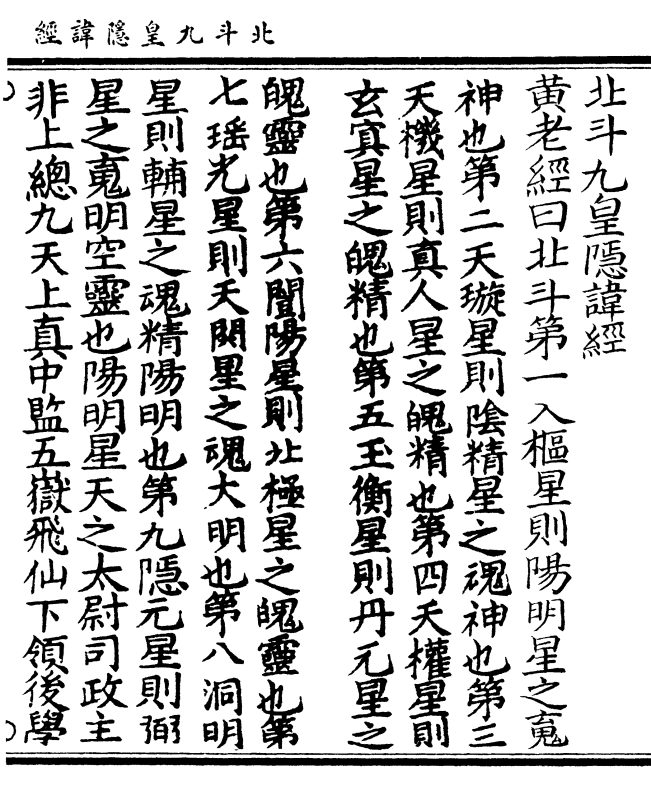 北斗九皇隱諱經
北斗九皇隱諱經
黃老經曰北斗第一入樞星則陽明星之䰟
神也第二天璇星則陰精星之魂神也第三
天機星則真人星之魄精也第四天權星則
玄冥星之魄精也第五玉衡星則丹元星之
魄靈也第六闓陽星則北極星之魄靈也第
七瑶光星則天關星之魂大明也第八洞明
星則輔星之魂精陽明也第九隱元星則弼
星之䰟明空靈也陽明星天之太尉司政主
非上總九天上真中監五嶽飛仙下領後學